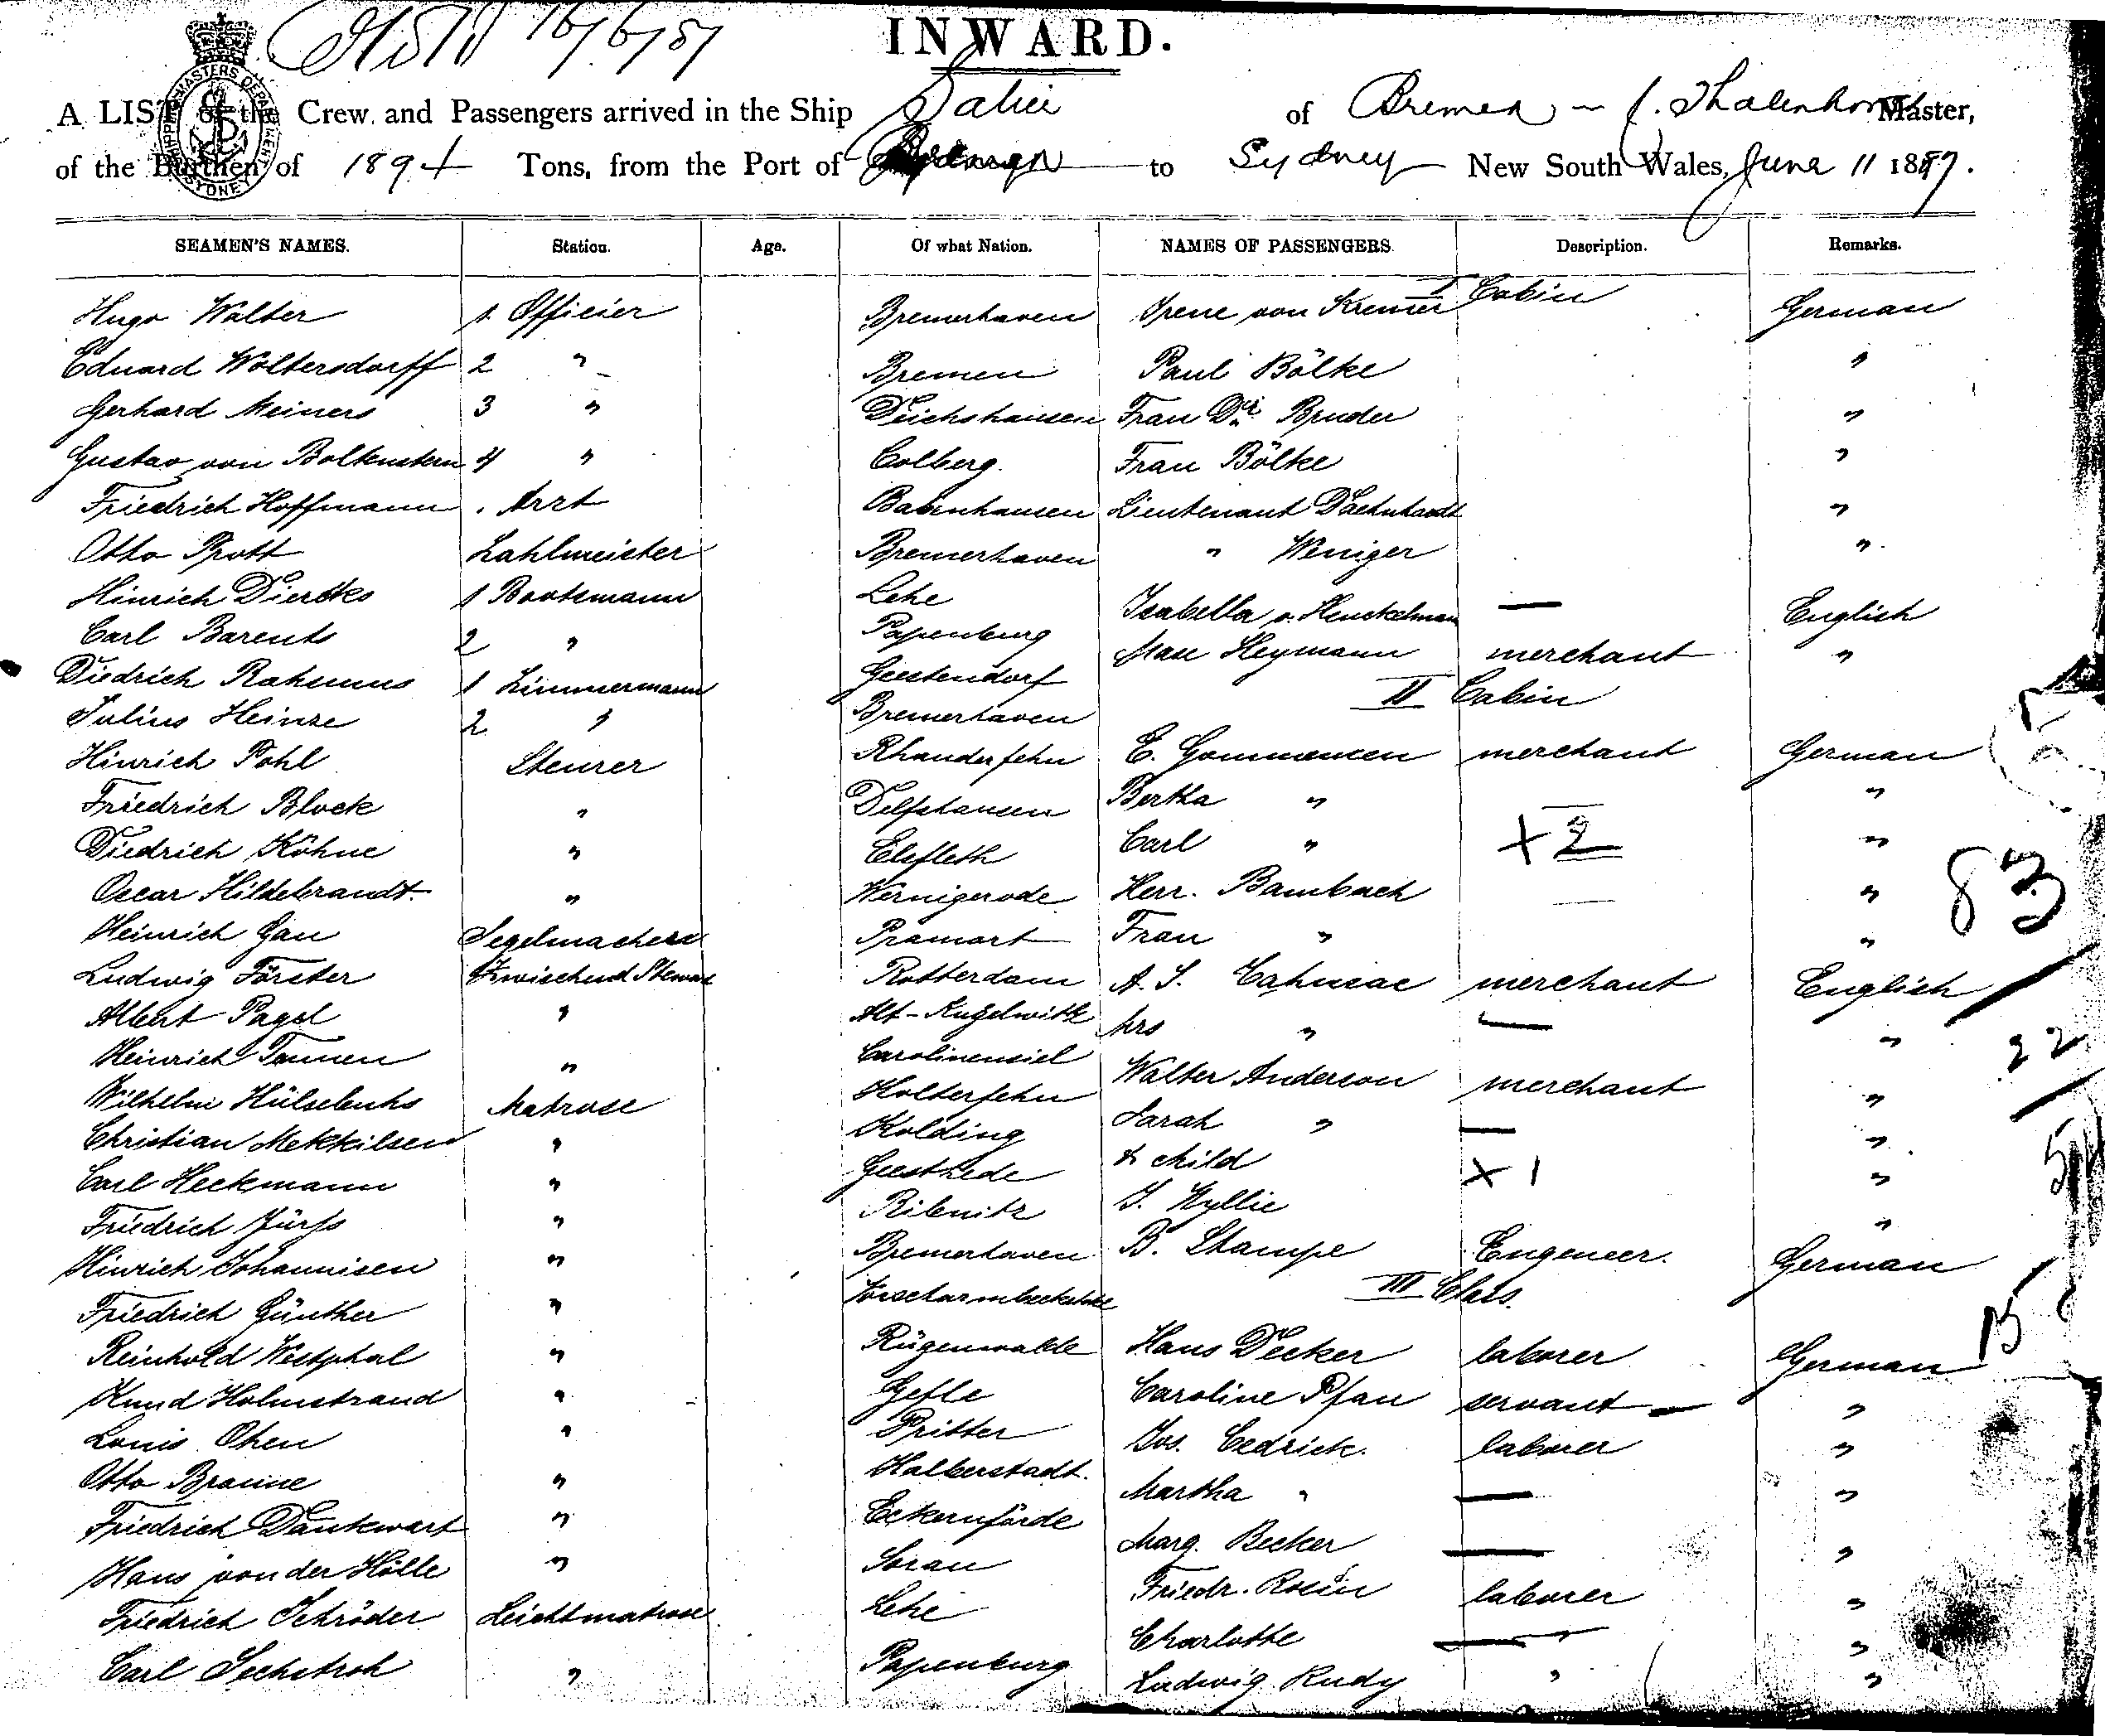 INWARD.
A LIST of the Crew and Passengers arrived in the Ship Salier of Bremen – Master,
of the Burthen of 1894 Tons, from the Port of Bremen to Sydney New South Wales, June 11 1887.
SEAMEN'S NAMES. Station. Age. Of what Nation. NAMES OF PASSENGERS. Description. Remarks.
I Cabin
Hugo Walter 1. Officier Bremerhaven Irene von Kremer German
Eduard Woltersdorff 2 " Bremen Paul Bölke "
Gerhard Meiners 3 " Deichshausen Frau Dr. Bruder "
Gustav von Bolkenstern 4 " Colberg. Frau Bölke "
Friedrich Hoffmann Arzt Babenhausen Lieutenant Daehnhardt "
Otto Prott Zahlmeister Bremerhaven " Weniger "
Hinrich Diercks 1 Bootsmann Lehe Isabella v. Henckelman — English
Carl Barents 2 " Papenburg Max Heymann merchant "
Diedrich Rahmus 1 Zimmermann Geestendorf
II Cabin
Julius Heinze 2 " Bremerhaven
Hinrich Pohl Steurer Rhauderfehn E. Gommensen merchant German
Friedrich Block " Delfshausen Bertha " "
Diedrich Köhne " Elsfleth Carl " + 2 "
Oscar Hildebrandt. " Wernigerode Herr. Bambach "
83
Heinrich Gau Segelmacher Pramort Frau " "
Ludwig Förster Zwischend Steward Rotterdam A. S. Cahusac merchant English
Albert Pagel " Alt-Kugelwitz Mrs " — "
22
Heinrich Tannen " Carolinensiel Walter Anderson merchant "
Wilhelm Hülsebuhs Matrose Holterfehn Sarah " — "
Christian Mekkilsen " Kolding & child × 1 "
Carl Heckmann " Geesthede J. Wyllie "
Friedrich Jürfs " Ribnitz B. Stampe Engeneer. German
Hinrich Johannisen " Bremerhaven
III Class.
Friedrich Günther "
15
Reinhold Westphal " Rügenwalde Hans Decker laborer German
Knud Holmstrand " Gefle Caroline Pfau servant "
Louis Ohen " Pritter Jos. Cedrick. laborer "
Otto Braune " Halberstadt. Martha " — "
Friedrich Dankwart " Eckernförde Marg. Becker — "
Hans von der Hölle " Sorau Friedr. Rosin laborer "
Friedrich Schröder Leichtmatrose Lehe Charlotte — "
Carl Sechstroh " Papenburg Ludwig Rudy " "